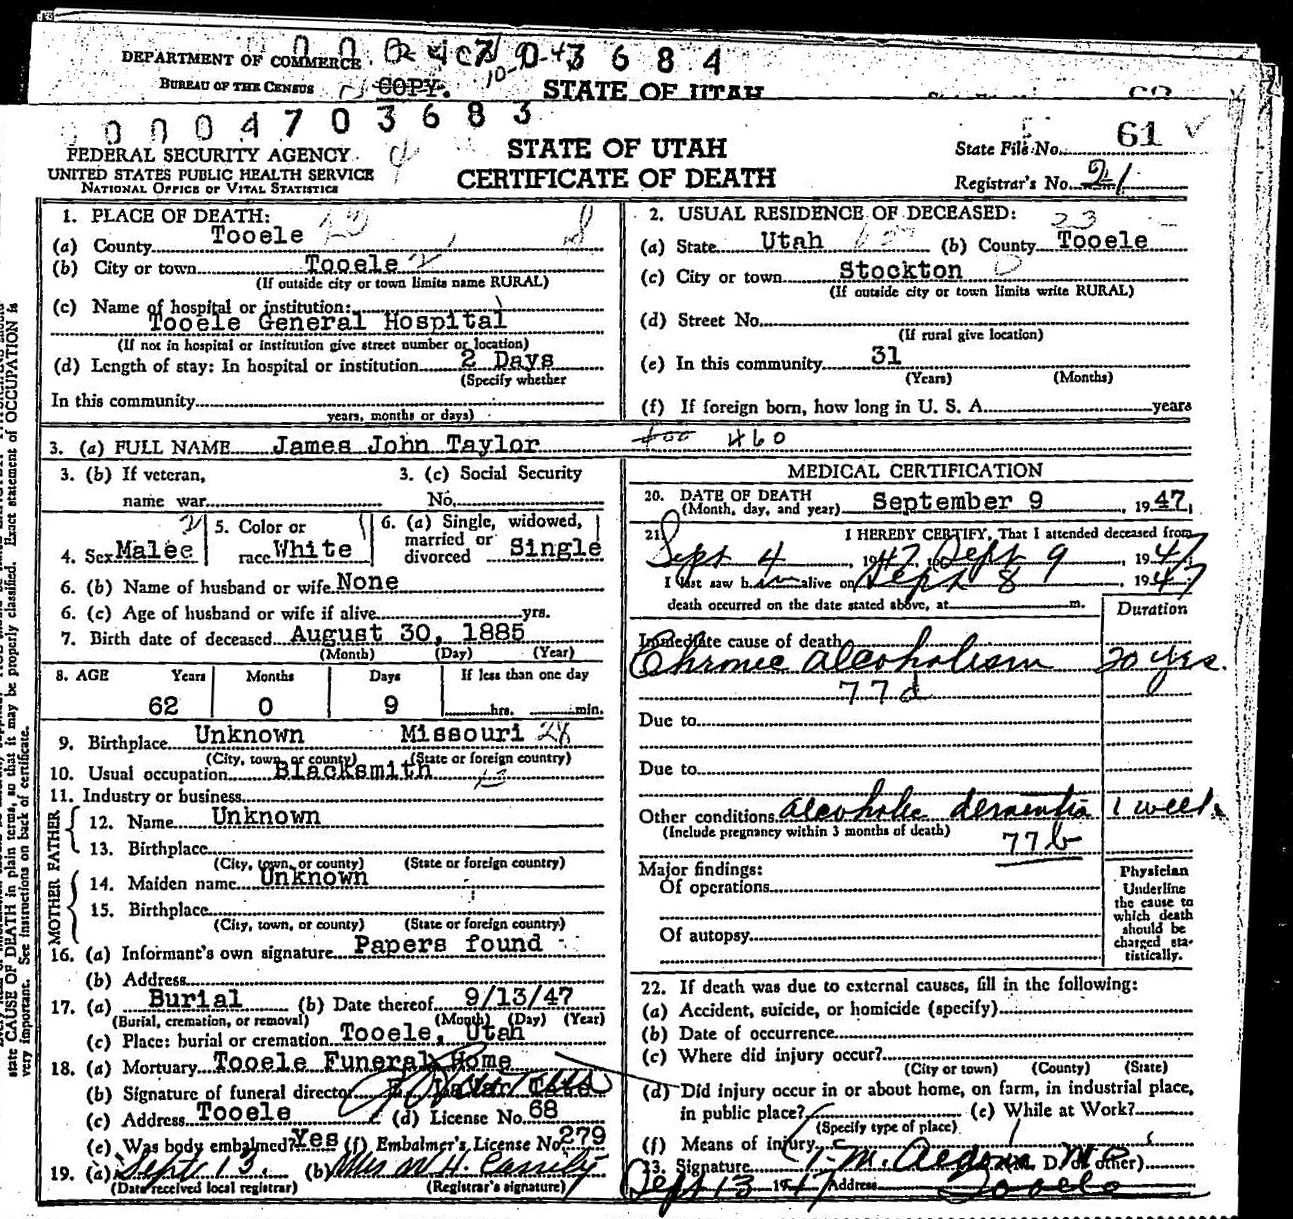 DEPARTMENT OF COMMERCE
BUREAU OF THE CENSUS COPY. STATE OF UTAH
3 6 8 4
0 0 0 4 7 0 3 6 8 3
FEDERAL SECURITY AGENCY
UNITED STATES PUBLIC HEALTH SERVICE
NATIONAL OFFICE OF VITAL STATISTICS
STATE OF UTAH
CERTIFICATE OF DEATH
State File No. 61
Registrar's No. 21
1. PLACE OF DEATH:
(a) County Tooele
(b) City or town Tooele
(If outside city or town limits name RURAL)
(c) Name of hospital or institution:
Tooele General Hospital
(If not in hospital or institution give street number or location)
(d) Length of stay: In hospital or institution 2 Days
(Specify whether
In this community
years, months or days)
2. USUAL RESIDENCE OF DECEASED:
23
(a) State Utah (b) County Tooele
(c) City or town Stockton
(If outside city or town limits write RURAL)
(d) Street No.
(If rural give location)
(e) In this community 31
(Years) (Months)
(f) If foreign born, how long in U. S. A. years
3. (a) FULL NAME James John Taylor 400 460
3. (b) If veteran,
name war
3. (c) Social Security
No.
4. Sex Malee
5. Color or
race White
6. (a) Single, widowed,
married or
divorced Single
6. (b) Name of husband or wife None
6. (c) Age of husband or wife if alive yrs.
7. Birth date of deceased August 30, 1885
(Month) (Day) (Year)
8. AGE Years Months Days If less than one day
62 0 9 hrs. min.
9. Birthplace Unknown Missouri
(City, town, or county) (State or foreign country)
10. Usual occupation Blacksmith
11. Industry or business
FATHER
12. Name Unknown
13. Birthplace
(City, town, or county) (State or foreign country)
MOTHER
14. Maiden name Unknown
15. Birthplace
(City, town, or county) (State or foreign country)
16. (a) Informant's own signature Papers found
(b) Address
17. (a) Burial (b) Date thereof 9/13/47
(Burial, cremation, or removal) (Month) (Day) (Year)
(c) Place: burial or cremation Tooele, Utah
18. (a) Mortuary Tooele Funeral Home
(b) Signature of funeral director
(c) Address Tooele (d) License No. 68
(e) Was body embalmed? Yes (f) Embalmer's License No. 279
19. (a) Sept 13. (b)
(Date received local registrar) (Registrar's signature)
MEDICAL CERTIFICATION
20. DATE OF DEATH
(Month, day, and year) September 9, 1947,
21. I HEREBY CERTIFY, That I attended deceased from
Sept 4, 1947, to Sept 9, 1947
I last saw him alive on Sept 8, 1947
death occurred on the date stated above, at m.
Duration
Immediate cause of death
Chronic alcoholism 20 yrs.
77d
Due to
Due to
Other conditions alcoholic dementia 1 week
(Include pregnancy within 3 months of death)
77b
Major findings:
Of operations
Of autopsy
Physician
Underline
the cause to
which death
should be
charged sta-
tistically.
22. If death was due to external causes, fill in the following:
(a) Accident, suicide, or homicide (specify)
(b) Date of occurrence
(c) Where did injury occur?
(City or town) (County) (State)
(d) Did injury occur in or about home, on farm, in industrial place,
in public place? (e) While at Work?
(Specify type of place)
(f) Means of injury
23. Signature (M. D. or other)
Sept 13 1947 Address Tooele
state CAUSE OF DEATH in plain terms, so that it may be properly classified. Exact statement of OCCUPATION is
very important. See instructions on back of certificate.